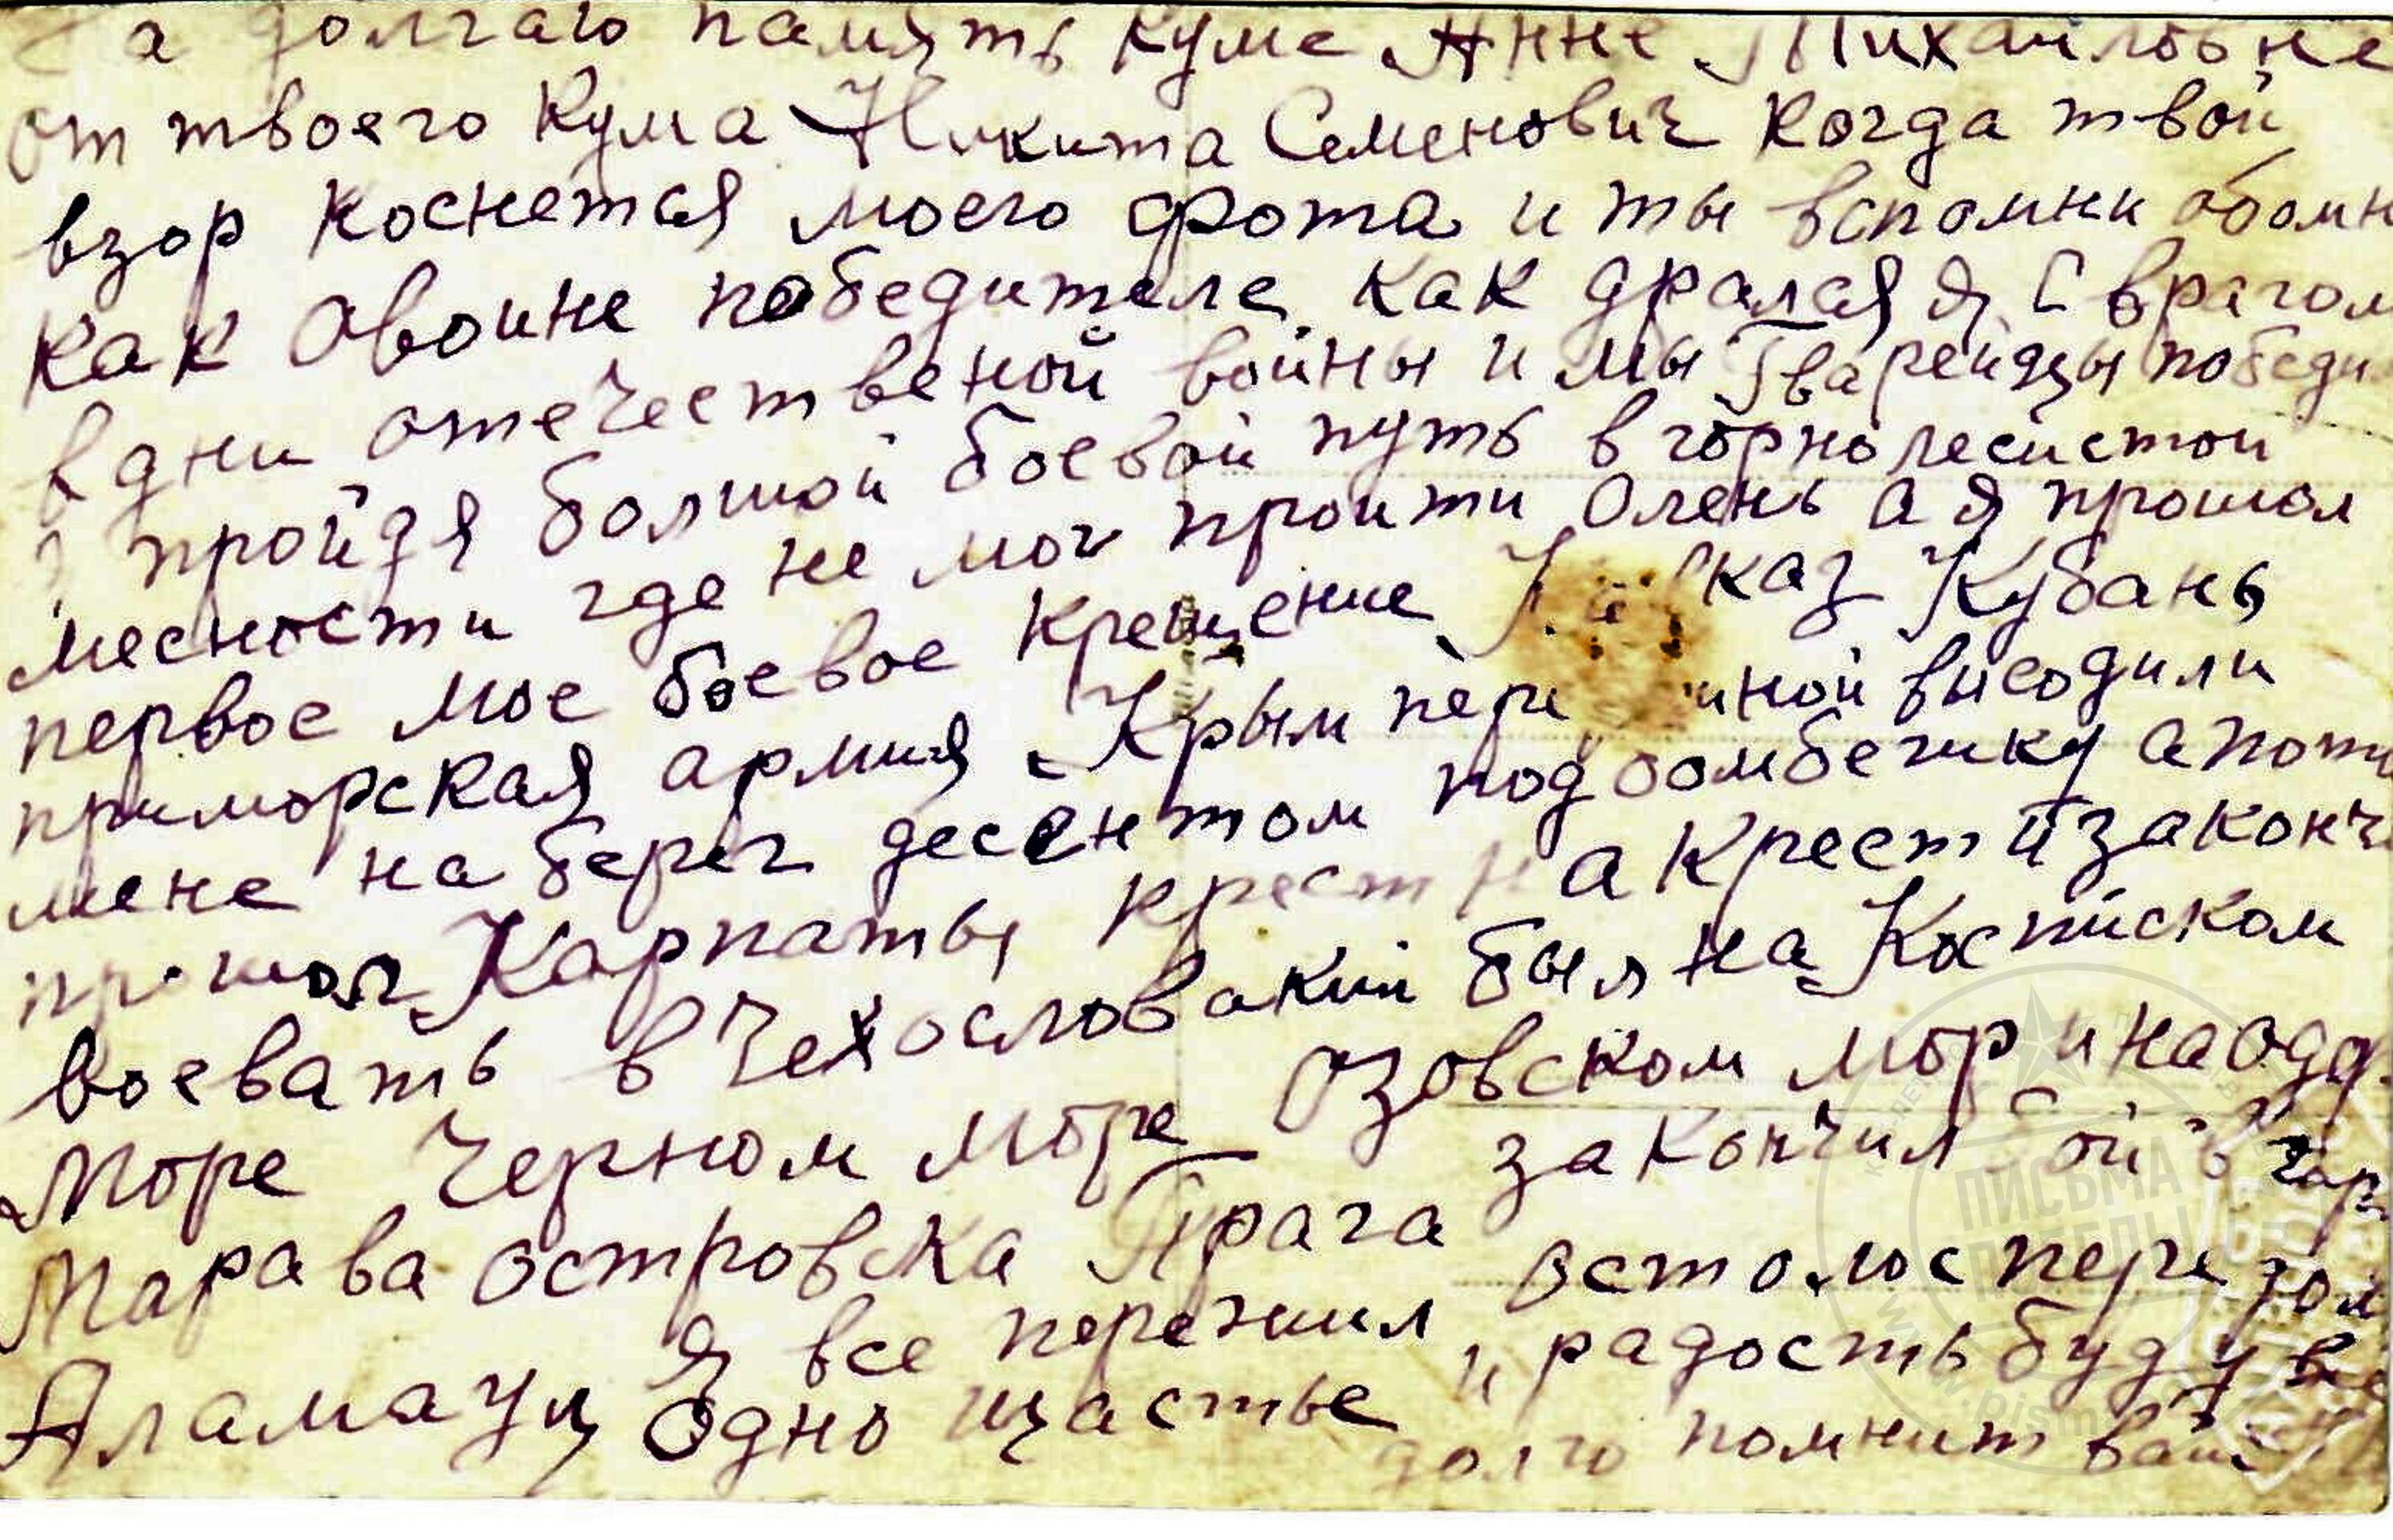 На долгаю память куме Анне Михайловне
от твоего кума Никита Семенович когда твой
взор коснетася моего фота и ты вспомни обомн
как овоине победителе как дралася я с врагом
в дни отечественой войны и мы Гварейцы победи
и пройдя болшой боевой путь в горнолесистой
месности где не мог проити олень а я прошол
первое мое боевое крещение Кавказ Кубань
приморская армия Крым пере иной высодили
мене на берег десентом под бомбежку апотм
прошол Карпаты крест на крест и законч
воевать в Чехословакии был на Косписком
море Черном море Озовском мор и на Одд
Марава островска Прага закончил бой в гор
Аламауц я все пережил осталос перезол
одно щастье и радость буду ве
долго помнит ваш
ПИСЬМА
ПОБЕДЫ